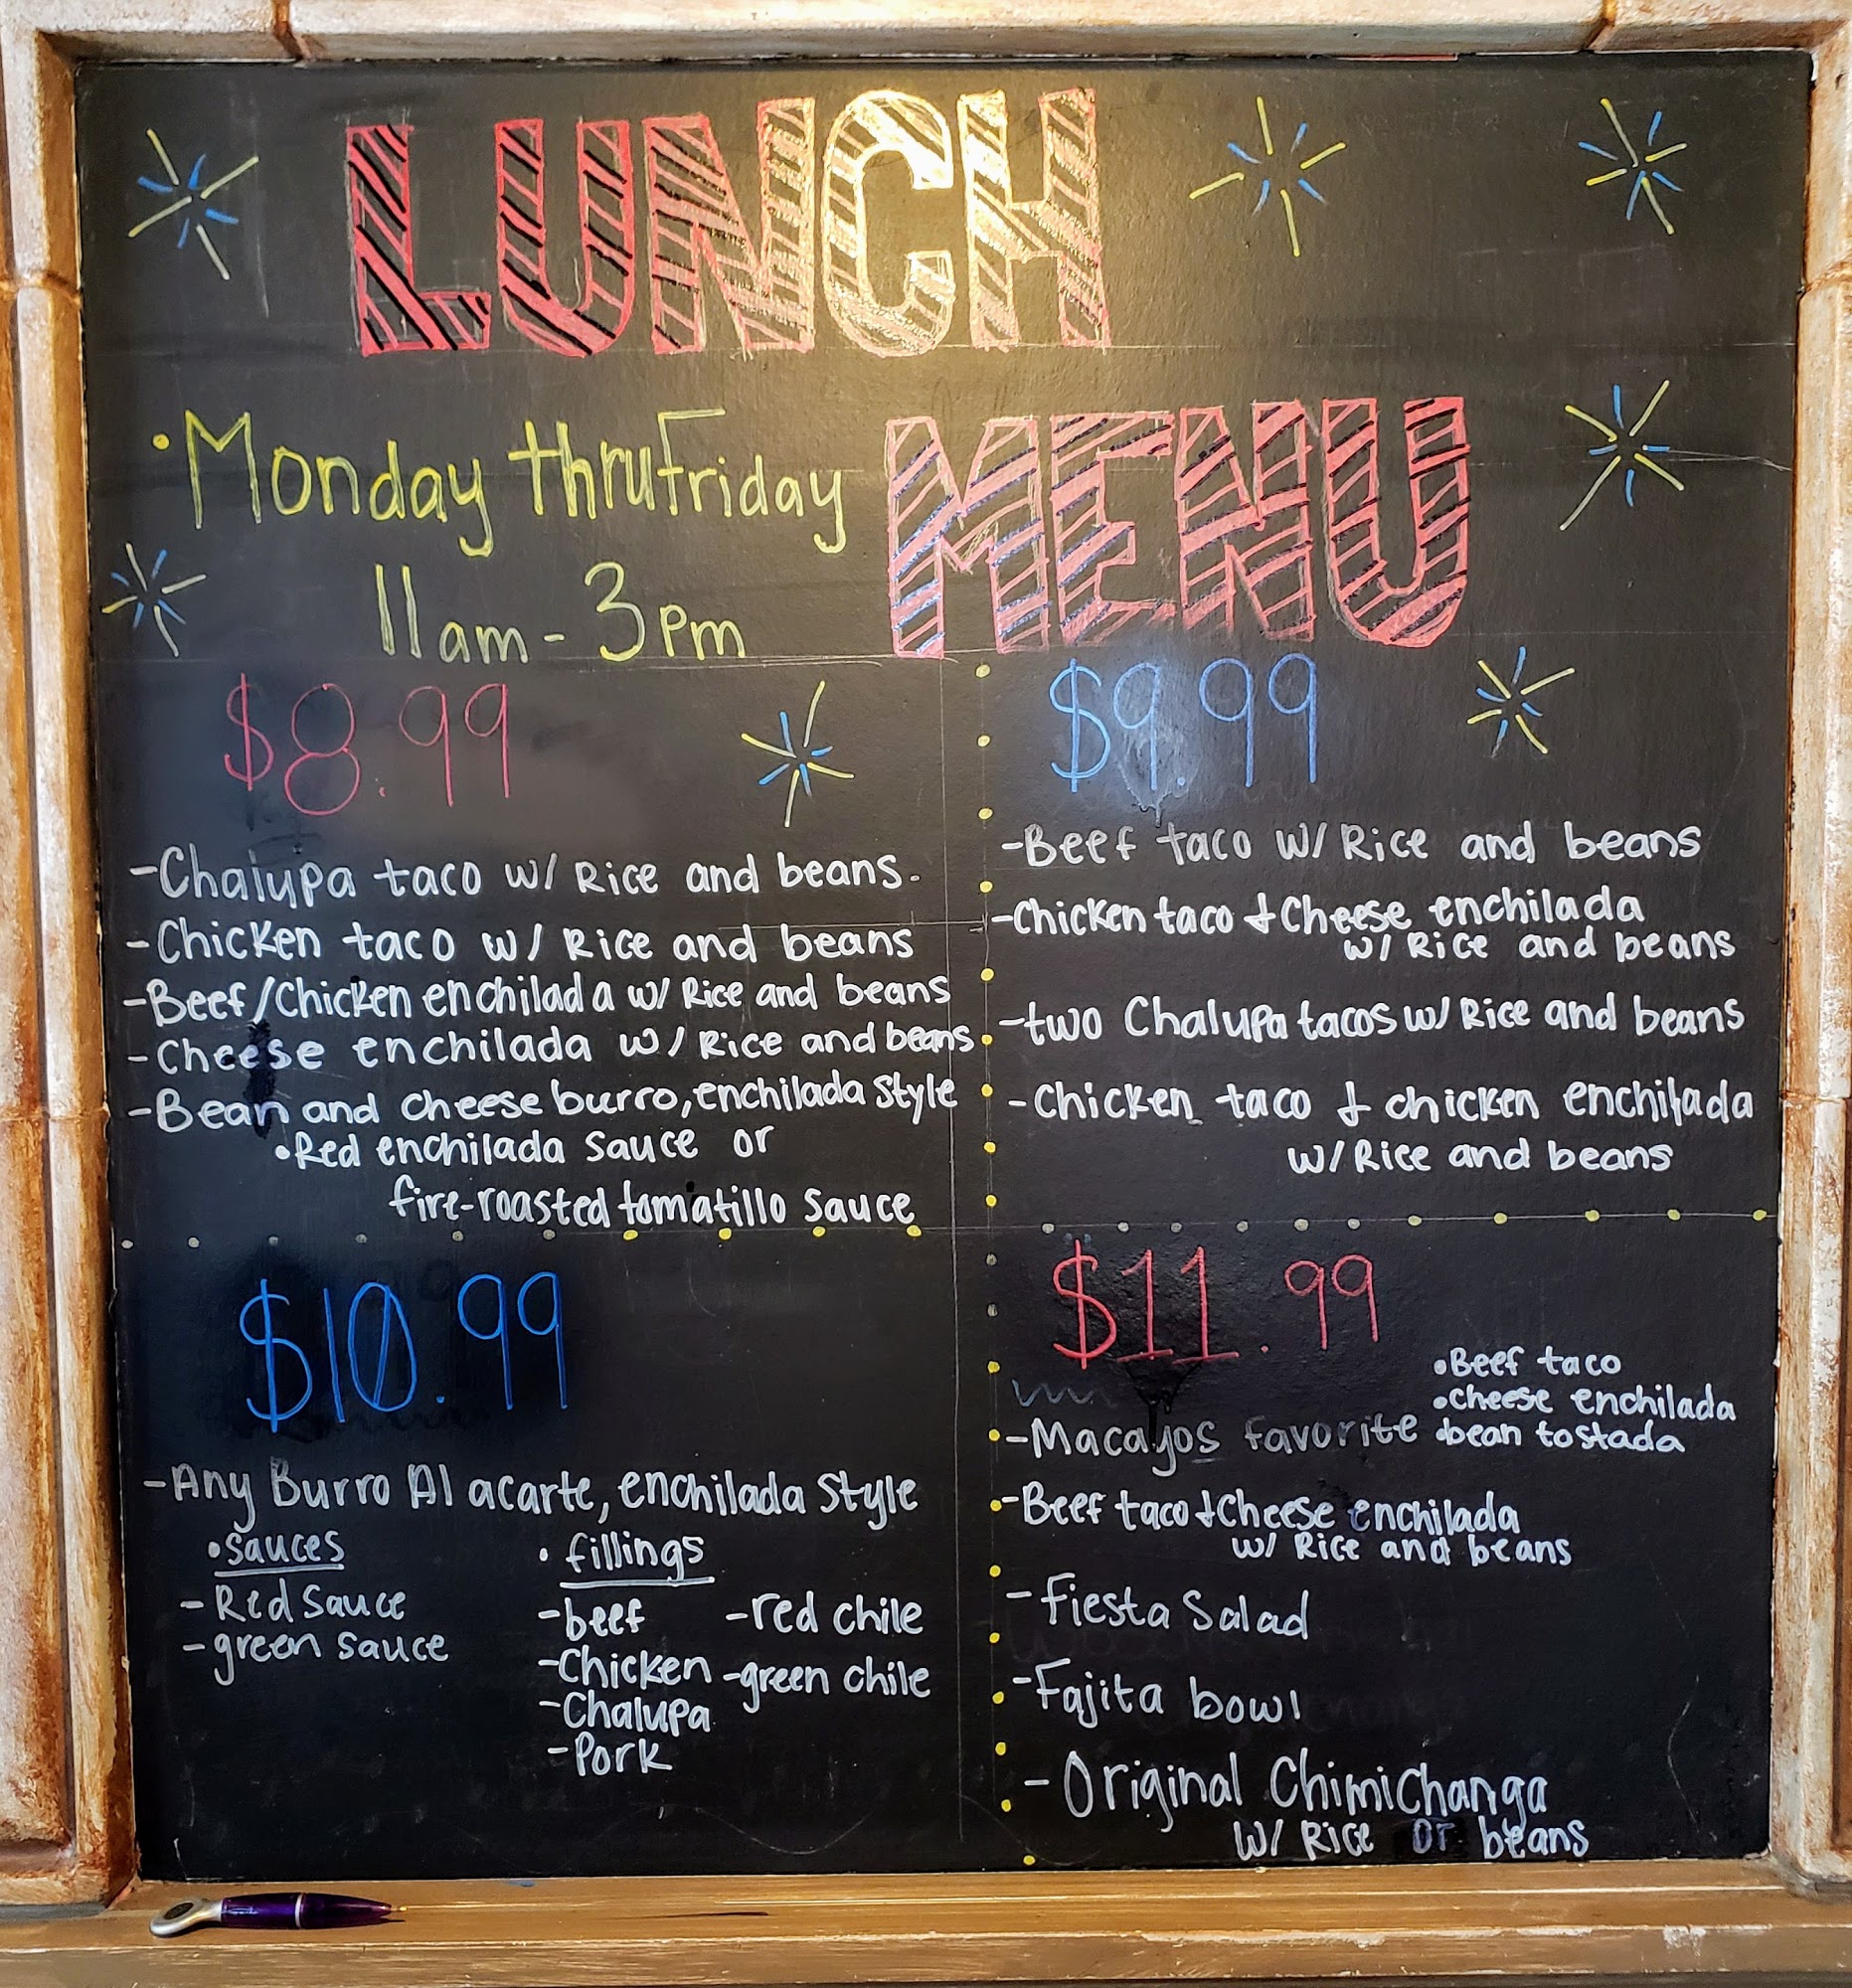 LUNCH
MENU
•Monday thru Friday
11am - 3pm
$8.99
-Chalupa taco w/ Rice and beans.
-Chicken taco w/ Rice and beans
-Beef/Chicken enchilada w/ Rice and beans
-Cheese enchilada w/ Rice and beans
-Bean and cheese burro, enchilada Style
•Red enchilada sauce or
fire-roasted tomatillo sauce
$9.99
-Beef taco w/ Rice and beans
-Chicken taco & Cheese enchilada
w/ Rice and beans
-two Chalupa tacos w/ Rice and beans
-Chicken taco & chicken enchilada
w/ Rice and beans
$10.99
-Any Burro Al acarte, enchilada Style
•sauces
-Red Sauce
-green sauce
•fillings
-beef
-Chicken
-Chalupa
-Pork
-red chile
-green chile
$11.99
-Macayos favorite
•Beef taco
•Cheese enchilada
•bean tostada
-Beef taco & Cheese enchilada
w/ Rice and beans
-Fiesta Salad
-Fajita bowl
-Original Chimichanga
w/ Rice or beans